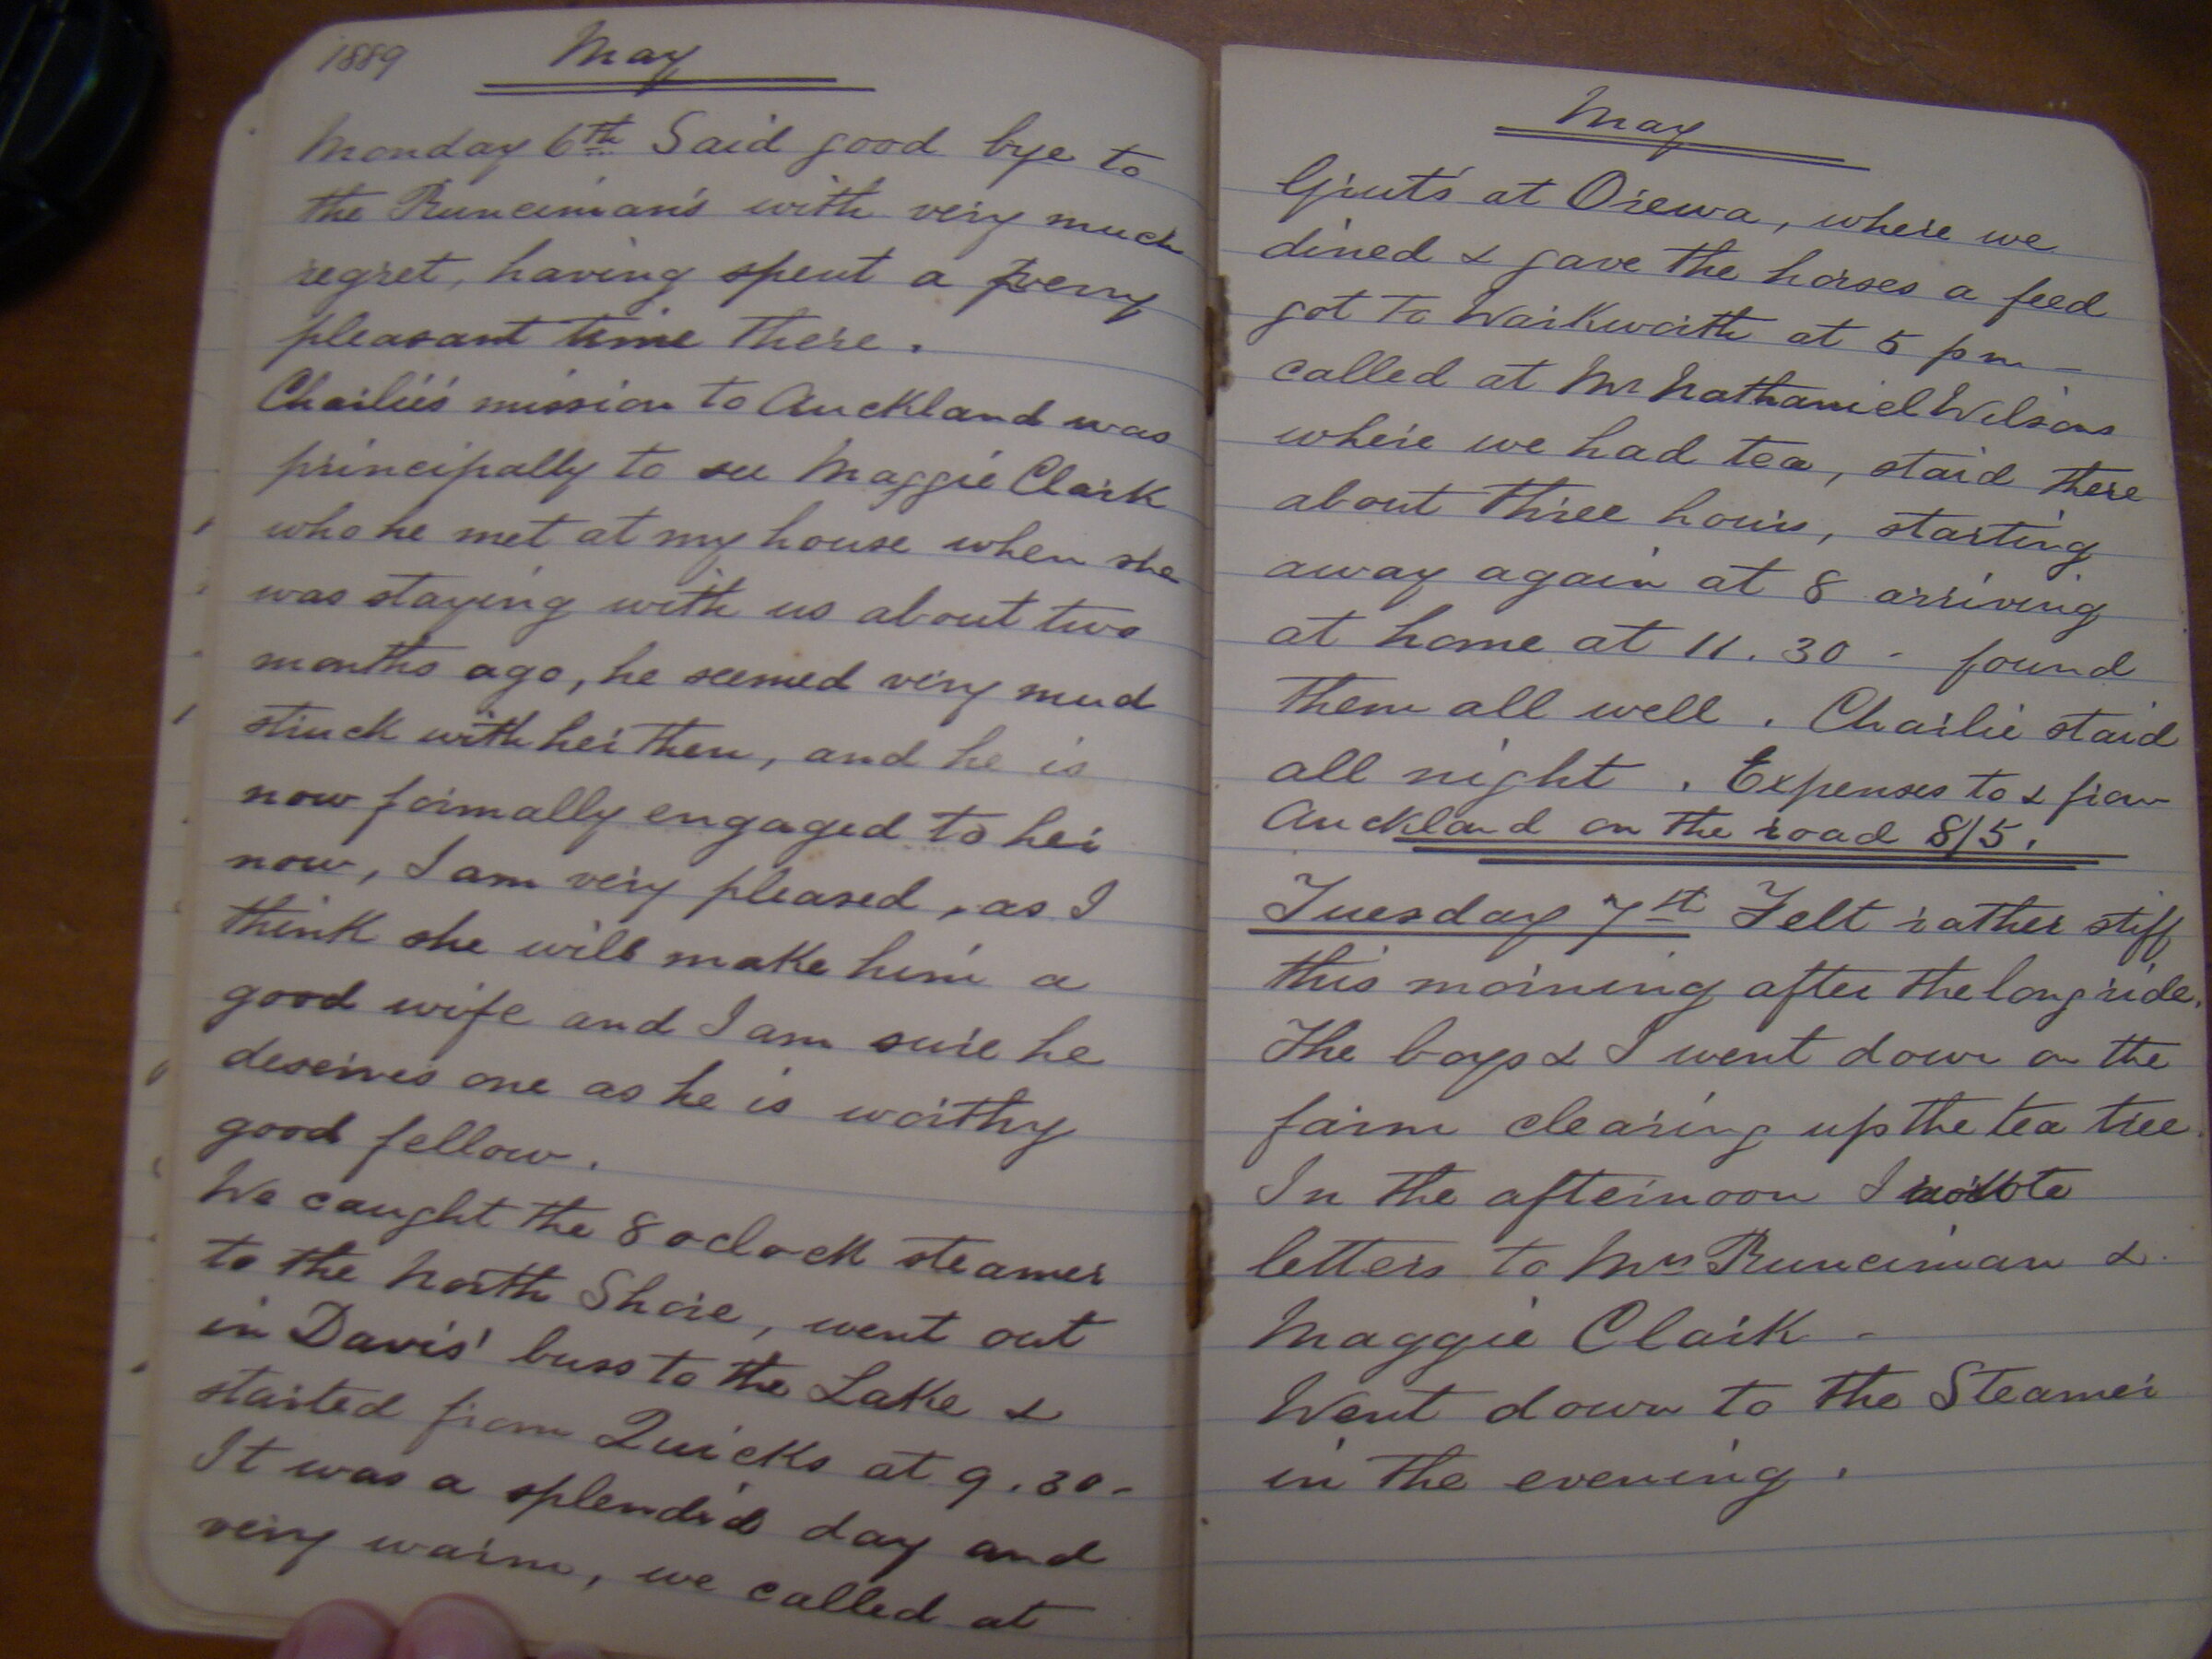 1889 May
Monday 6th Said good bye to
the Runciman's with very much
regret, having spent a very
pleasant time there.
Charlie's mission to Auckland was
principally to see Maggie Clark
who he met at my house when she
was staying with us about two
months ago, he seemed very much
struck with her then, and he is
now formally engaged to her
now, I am very pleased, as I
think she will make him a
good wife and I am sure he
deserves one as he is worthy
good fellow.
We caught the 8 oclock steamer
to the North Shore, went out
in Davis' buss to the Lake &
started from Quicks at 9.30-
It was a splendid day and
very warm, we called at
May
Gruts at Orewa, where we
dined & gave the horses a feed
got to Warkworth at 5 pm -
called at Mr Nathaniel Wilsons
where we had tea, staid there
about three hours, starting
away again at 8 arriving
at home at 11.30 - found
them all well. Charlie staid
all night. Expenses to & from
Auckland on the road 8/5.
Tuesday 7st Felt rather stiff
this morning after the long ride.
The boys & I went down on the
farm clearing up the tea tree.
In the afternoon I wrote
letters to Mrs Runciman &
Maggie Clark -
Went down to the Steamer
in the evening.